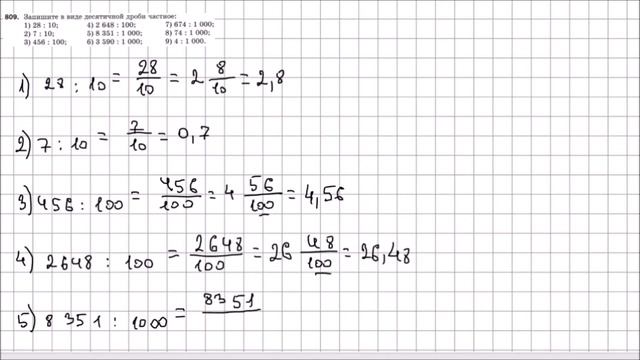 809. Запишите в виде десятичной дроби частное:
1) 28 : 10; 4) 2 648 : 100; 7) 674 : 1 000;
2) 7 : 10; 5) 8 351 : 1 000; 8) 74 : 1 000;
3) 456 : 100; 6) 3 590 : 1 000; 9) 4 : 1 000.
1) 28 : 10 = 28/10 = 2 8/10 = 2,8
2) 7 : 10 = 7/10 = 0,7
3) 456 : 100 = 456/100 = 4 56/100 = 4,56
4) 2648 : 100 = 2648/100 = 26 48/100 = 26,48
5) 8351 : 1000 = 8351